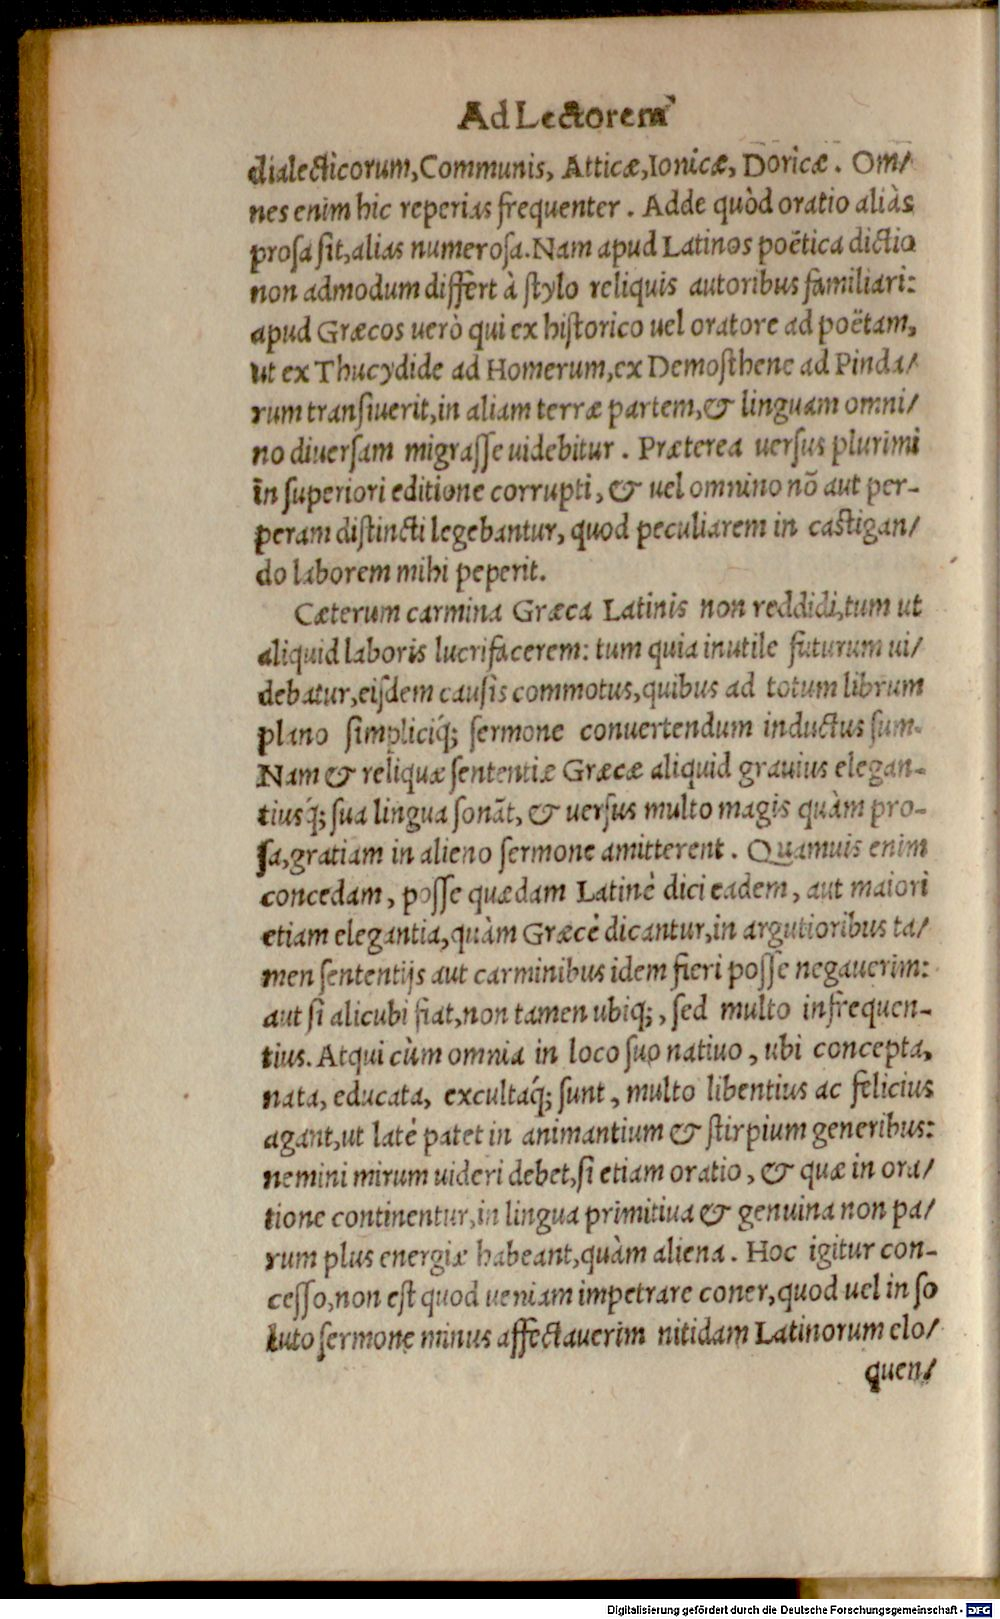 Ad Lectorem
dialecticorum, Communis, Atticæ, Ionicæ, Doricæ. Om/
nes enim hic reperias frequenter. Adde quòd oratio aliàs
prosa sit, alias numerosa. Nam apud Latinos poëtica dictio
non admodum differt à stylo reliquis autoribus familiari:
apud Græcos uerò qui ex historico uel oratore ad poëtam,
ut ex Thucydide ad Homerum, ex Demosthene ad Pinda/
rum transiuerit, in aliam terræ partem, & linguam omni/
no diuersam migrasse uidebitur. Præterea uersus plurimi
in superiori editione corrupti, & uel omnino nõ aut per-
peram distincti legebantur, quod peculiarem in castigan/
do laborem mihi peperit.
Cæterum carmina Græca Latinis non reddidi, tum ut
aliquid laboris lucrifacerem: tum quia inutile futurum ui/
debatur, eisdem causis commotus, quibus ad totum librum
plano simpliciq́; sermone conuertendum inductus sum.
Nam & reliquæ sententiæ Græcæ aliquid grauius elegan-
tiusq́; sua lingua sonãt, & uersus multo magis quàm pro-
sa, gratiam in alieno sermone amitterent. Quamuis enim
concedam, posse quædam Latinè dici eadem, aut maiori
etiam elegantia, quàm Græcè dicantur, in argutioribus ta/
men sententijs aut carminibus idem fieri posse negauerim:
aut si alicubi fiat, non tamen ubiq;, sed multo infrequen-
tius. Atqui cùm omnia in loco suo natiuo, ubi concepta,
nata, educata, excultaq́; sunt, multo libentius ac felicius
agant, ut latè patet in animantium & stirpium generibus:
nemini mirum uideri debet, si etiam oratio, & quæ in ora/
tione continentur, in lingua primitiua & genuina non pa/
rum plus energiæ habeant, quàm aliena. Hoc igitur con-
cesso, non est quod ueniam impetrare coner, quod uel in so
luto sermone minus affectauerim nitidam Latinorum elo/
quen/
Digitalisierung gefördert durch die Deutsche Forschungsgemeinschaft - DFG